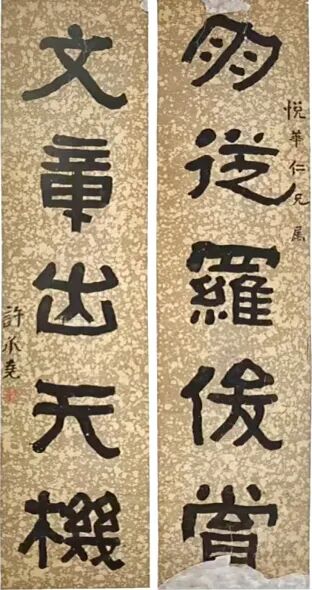 朋從羅俊賞
悅華仁兄屬
文章出天機
許承堯